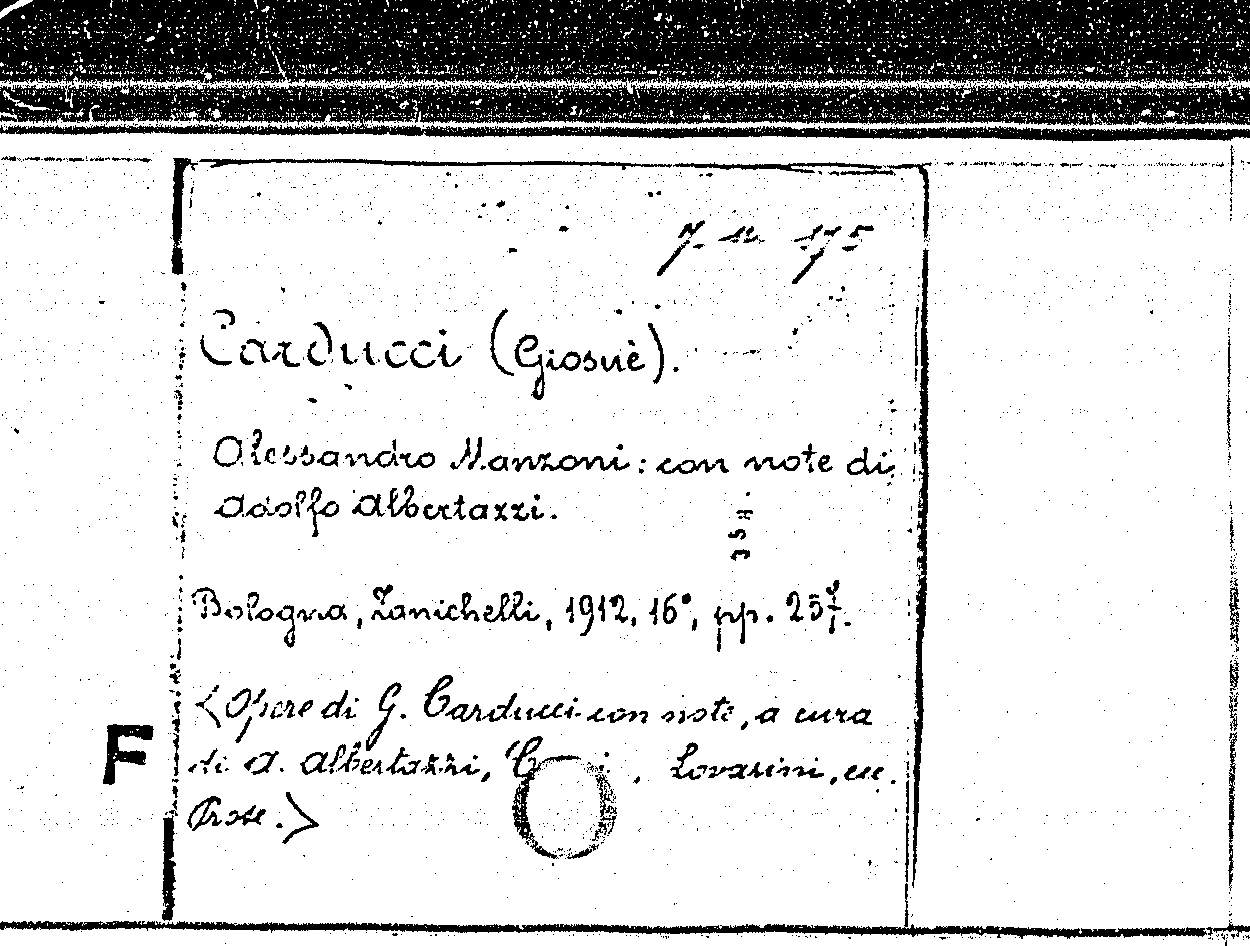 7. 11. 175
Carducci (Giosuè).
Alessandro Manzoni: con note di
Adolfo Albertazzi.
Bologna, Zanichelli, 1912, 16°, pp. 257.
<Opere di G. Carducci con note, a cura
F
di A. Albertazzi, , Lovarini, ecc.
Prose.>